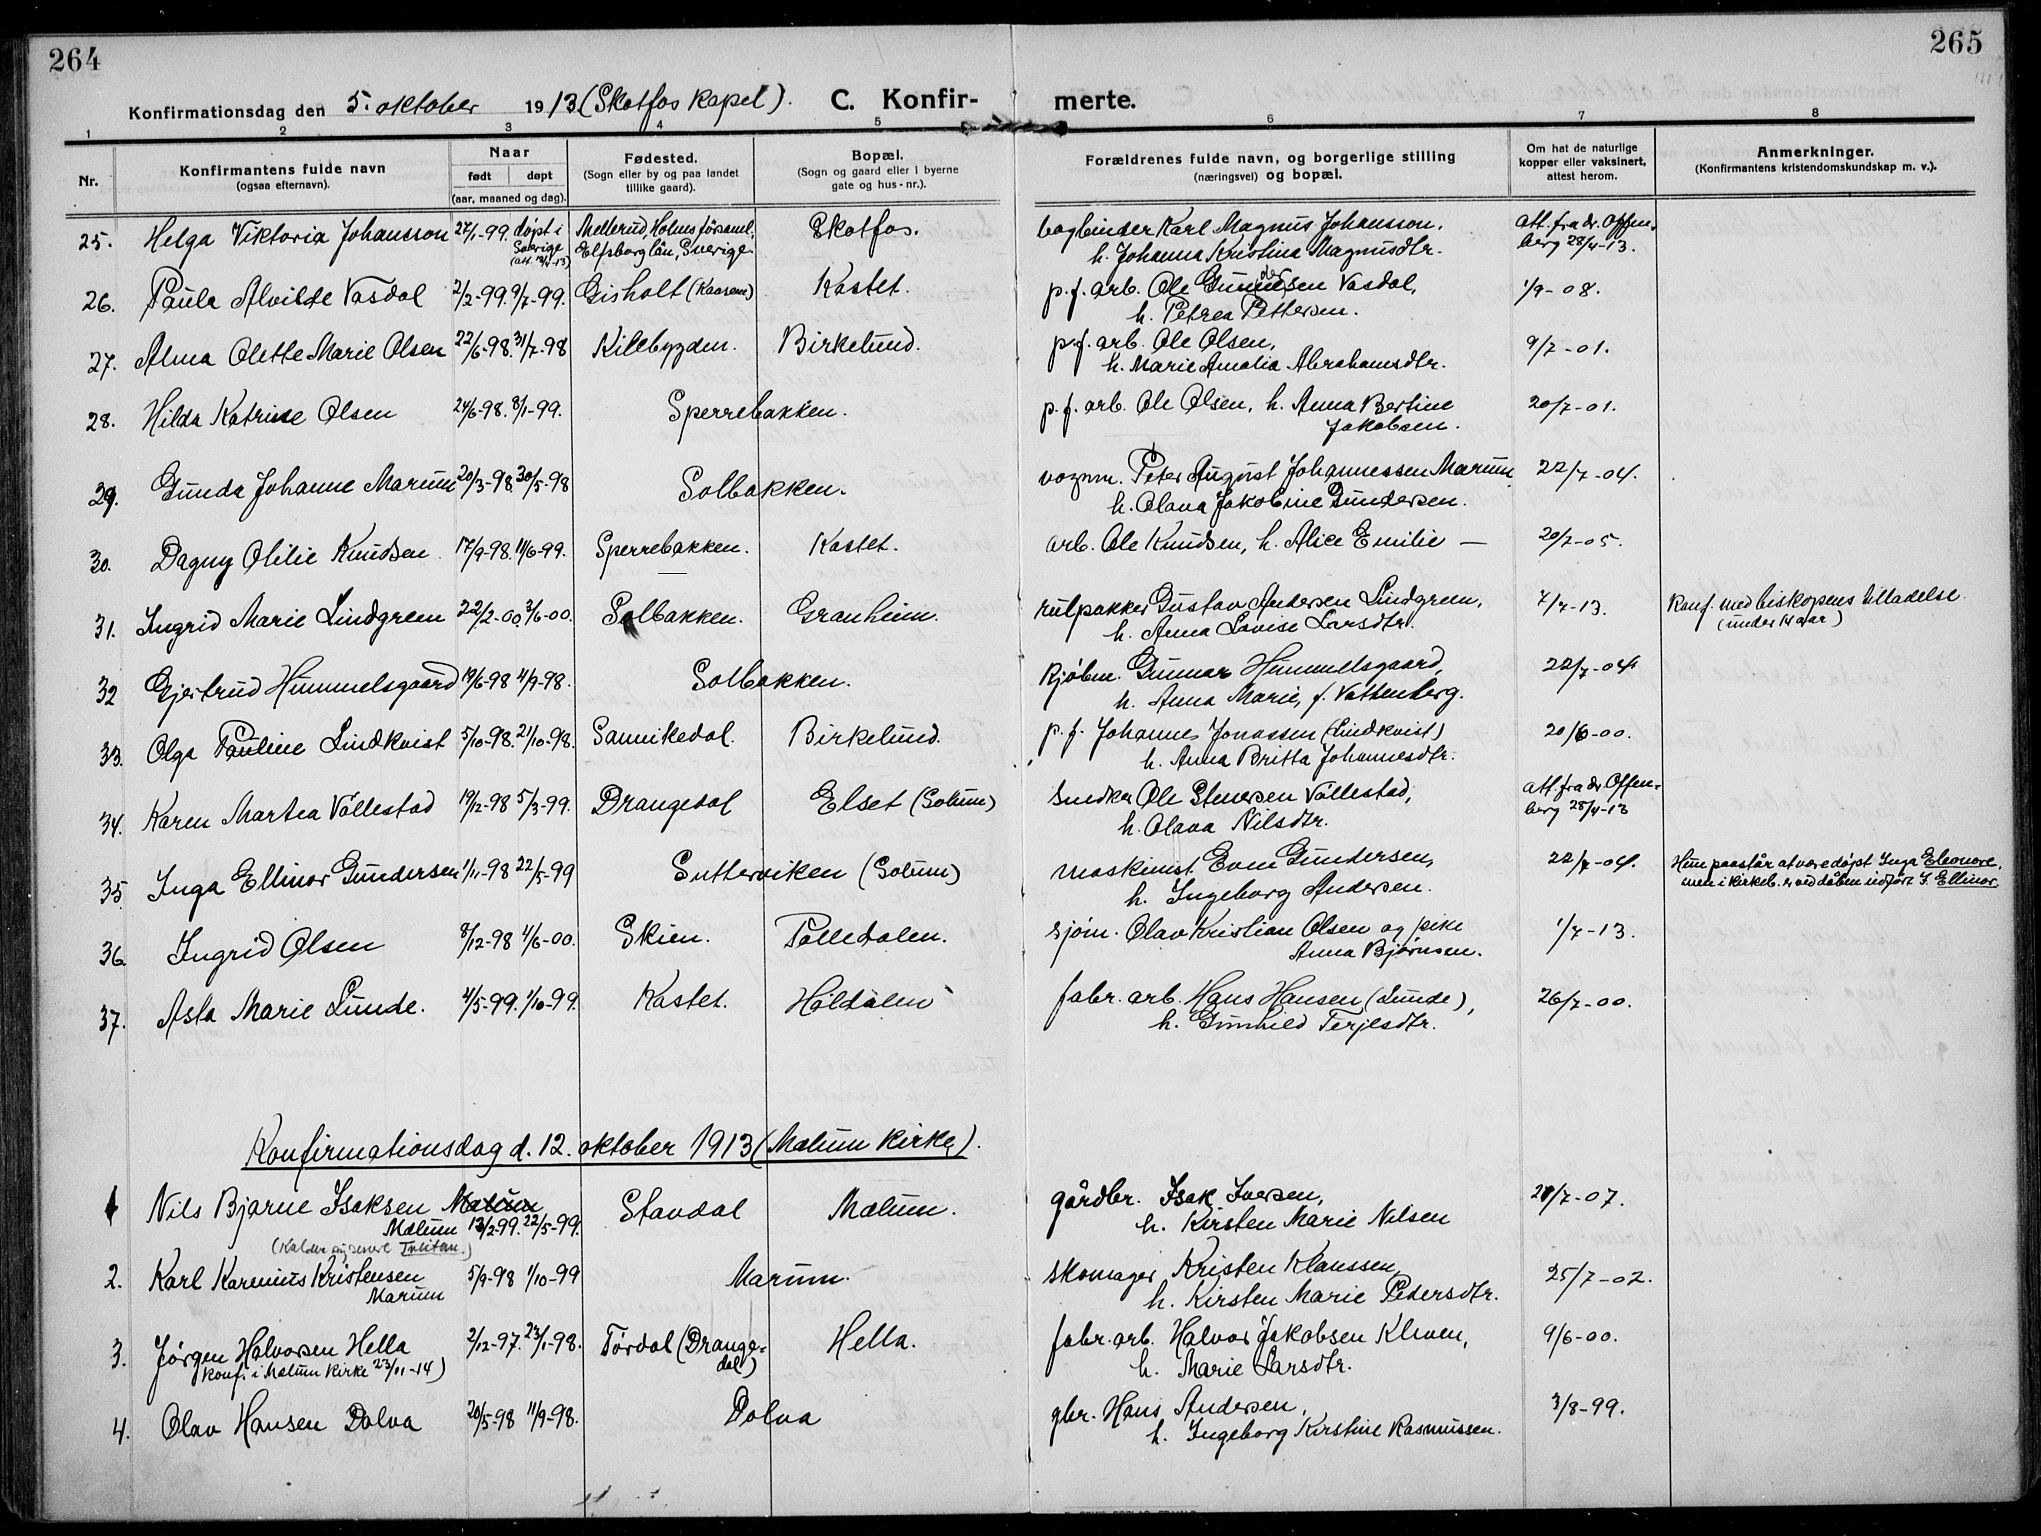 264
265
Konfirmationsdag den 5. oktober 1913 (Skotfos kapel). C. Konfir- merte.
1 2 3 4 5 6 7 8
Nr.
Konfirmantens fulde navn
(ogsaa efternavn).
Naar
født døpt
(aar, maaned og dag).
Fødested.
(Sogn eller by og paa landet
tillike gaard).
Bopæl.
(Sogn og gaard eller i byerne
gate og hus-nr.).
Forældrenes fulde navn, og borgerlige stilling
(næringsvei) og bopæl.
Om hat de naturlige
kopper eller vaksinert,
attest herom.
Anmerkninger.
(Konfirmantens kristendomskundskap m. v.).
25. Helga Viktoria Johansson 27/1-99. døpt i Mellerud, Holms församl. Skotfos. bogbinder Karl Magnus Johansson. Att. fra dr. Offen-
Sverige Elfsborg län, Sverige. h. Johanna Kristina Magnusdtr. berg 28/4-13.
26. Paula Alvilde Vasdal 2/2-99. 9/7-99. Gisholt (Kaasene) Kastet. p.f. arb. Ole Gundersen Vasdal, 1/9-08.
h. Petrea Pettersen.
27. Alma Olette Marie Olsen 22/6-98. 31/7-98 Kilebygden. Birkelund. p.f. arb. Ole Olsen, 9/7-01.
h. Marie Amalia Abrahamsdtr.
28. Hilda Katrine Olsen 24/6-98. 8/1-99. Sperrebakken. p.f. arb. Ole Olsen, h. Anna Bertine 20/7-01.
Jakobsen.
29. Gunda Johanne Marum 20/3-98. 30/5-98 Solbakken. vognm. Peter August Johannessen Marum 22/7-04.
h. Olava Jakobine Gundersen.
30. Dagny Otilie Knudsen 17/9-98. 11/6-99. Sperrebakken. Kastet. arb. Ole Knudsen, h. Alice Emilie — 20/7-05.
31. Ingrid Marie Lindgren 22/2-00. 3/6-00. Solbakken. Granheim. rulpakker Gustav Andersen Lindgren, 7/7-13. Konf. med biskopens tilladelse
h. Anna Lovise Larsdtr. (under 14 aar)
32 Gjertrud Hummelsgaard 19/6-98 4/9-98. Solbakken. Kjøbm. Gunnar Hummelsgaard, 22/7-04
h. Anna Marie, f. Vattenberg.
33. Olga Pauline Lindkvist 5/10-98. 21/10-98. Sannikedal. Birkelund. p.f. Johannes Jonassen (Lindkvist) 20/6-00.
h. Anna Britta Johannesdtr.
34. Karen Martea Vøllestad 19/12-98 5/3-99. Drangedal Elset (Solum) Snedker Ole Stenersen Vøllestad, Att. fra dr Offen-
h. Olava Nilsdtr. berg 28/4-13
35 Inga Ellinor Gundersen 1/11-98 22/5-99 Sutterviken (Solum) maskinist Even Gundersen, 22/7-04. Hun paastår at være døpt Inga Eleonore,
h. Ingeborg Andersen. men i kirkeb. er ved dåben indført I. Ellinor.
36. Ingrid Olsen 8/12-98 4/6-00. Skien. Polledalen. sjøm. Olav Kristian Olsen og pike 1/7-13.
Anna Bjørnsen.
37. Asta Marie Lunde. 4/5-99. 1/10-99. Kastet. Høldalen fabr. arb. Hans Hansen (Lunde), 26/7-00.
h. Gunhild Terjesdtr.
Konfirmationsdag d. 12. oktober 1913 (Mælum kirke).
1 Nils Bjarne Isaksen Stavdal Mælum. gårdbr. Isak Iversen, 21/7-07.
Mælum 13/2-99. 22/5-99. h. Kirsten Marie Nilsen
(Kalder sig senere
2. Karl Karenius Kristensen 5/9-98 1/10-99 Marum. skomager Kristen Klaussen, 25/7-02.
Marum h. Kirsten Marie Pedersdtr.
3. Jørgen Halvorsen Hella 2/12-97. 23/1-98. Tørdal (Drange- Hella. fabr. arb. Halvor Jakobsen Kleven, 9/6-00.
konf. i Mælum kirke 23/11-14) dal) h. Marie Larsdtr.
4. Olav Hansen Dolva 20/5-98 11/9-98. Dolva gbr. Hans Andersen, 3/8-99.
h. Ingeborg Kirstine Rasmussen.